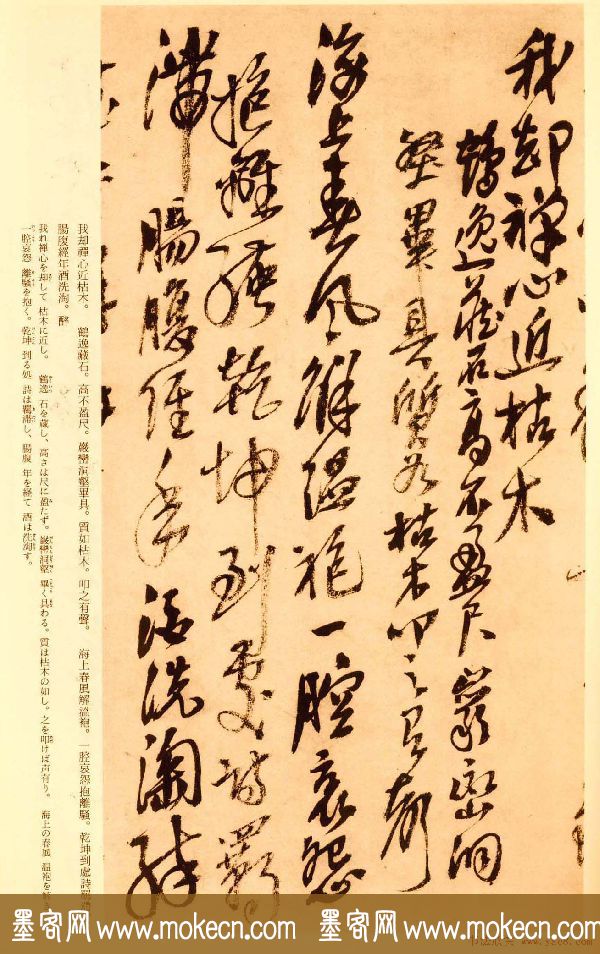 我却禅心近枯木
鶴逸藏石高不盈尺巖巒洞
壑畢具質如枯木叩之有聲
海上春風解温袍一腔哀怨
抱離騷乾坤到處詩羈
滯腸腹經年酒洗淘醉
我却禪心近枯木。 鶴逸藏石。高不盈尺。巖巒洞壑畢具。質如枯木。叩之有聲。 海上春風解温袍。一腔哀怨抱離騷。乾坤到處詩羈滯
腸腹經年酒洗淘。醉
我れ禅心を却して 枯木に近し。 鶴逸 石を蔵し、高さは尺に盈たず。巖巒洞壑 畢く具わる。質は枯木の如し。之を叩けば声有り。 海上の春風 温袍を解き
一腔哀怨 離騷を抱く。乾坤 到る処 詩は羈滯し、腸腹 年を経て 酒は洗淘す。
墨客网 www.mokecn.com 墨客网 www.mokecn.com